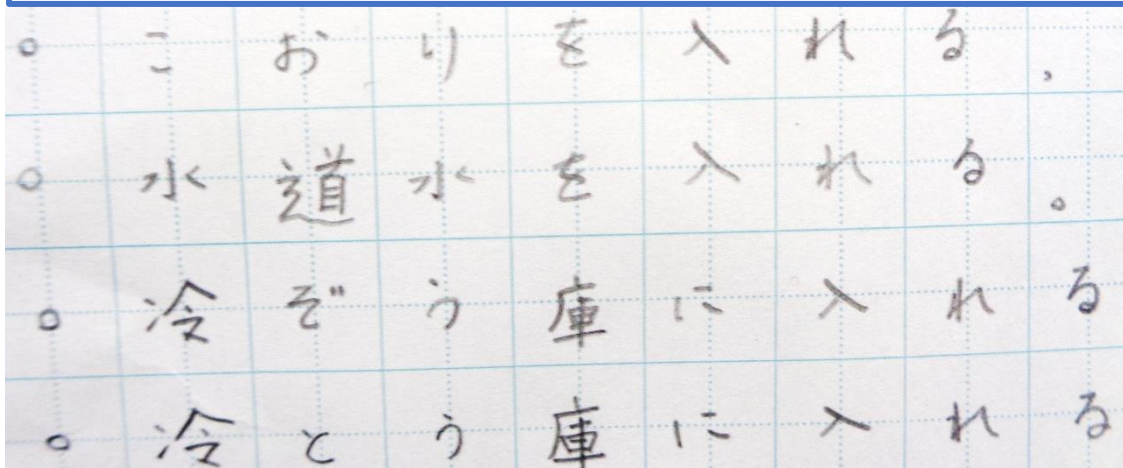 ○こおりを入れる。
○水道水を入れる。
○冷ぞう庫に入れる
○冷とう庫に入れる